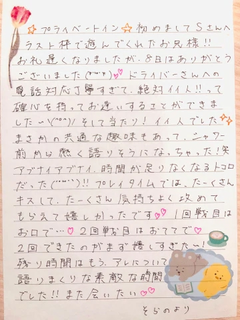 ☆プライベートイン☆ 初めましてSさんへ
ラスト枠で遊んでくれたお兄様!!
お礼遅くなりましたが…8日はありがとう
ございました(˘³˘)♡♡ ドライバーさんへの
電話対応さ 絶対イイ人!!って
確心を持ってお逢いすることができま
した〜\(^^)/ そして当たり! イイ人でした☆
まさかの共通な趣味もあって、ニャワー
前から熱く語りそうになっちゃた!笑
アブナイアブナイ、時間が足りなくなるトコロ
だった(˘˘)!! プレイタイムでは、たーくさん
キスして、たーくさん気持ちよく攻めて
もらえて嬉しかったです♡♡ 1回戦目は
お口で…♡ 2回戦目はおててで♡
2回できたのがまず嬉しすぎたぁ〜!
残り時間はもう、アレについて
語りまくりな素敵な時間
でした!! また会いたい♡♡
そらのより